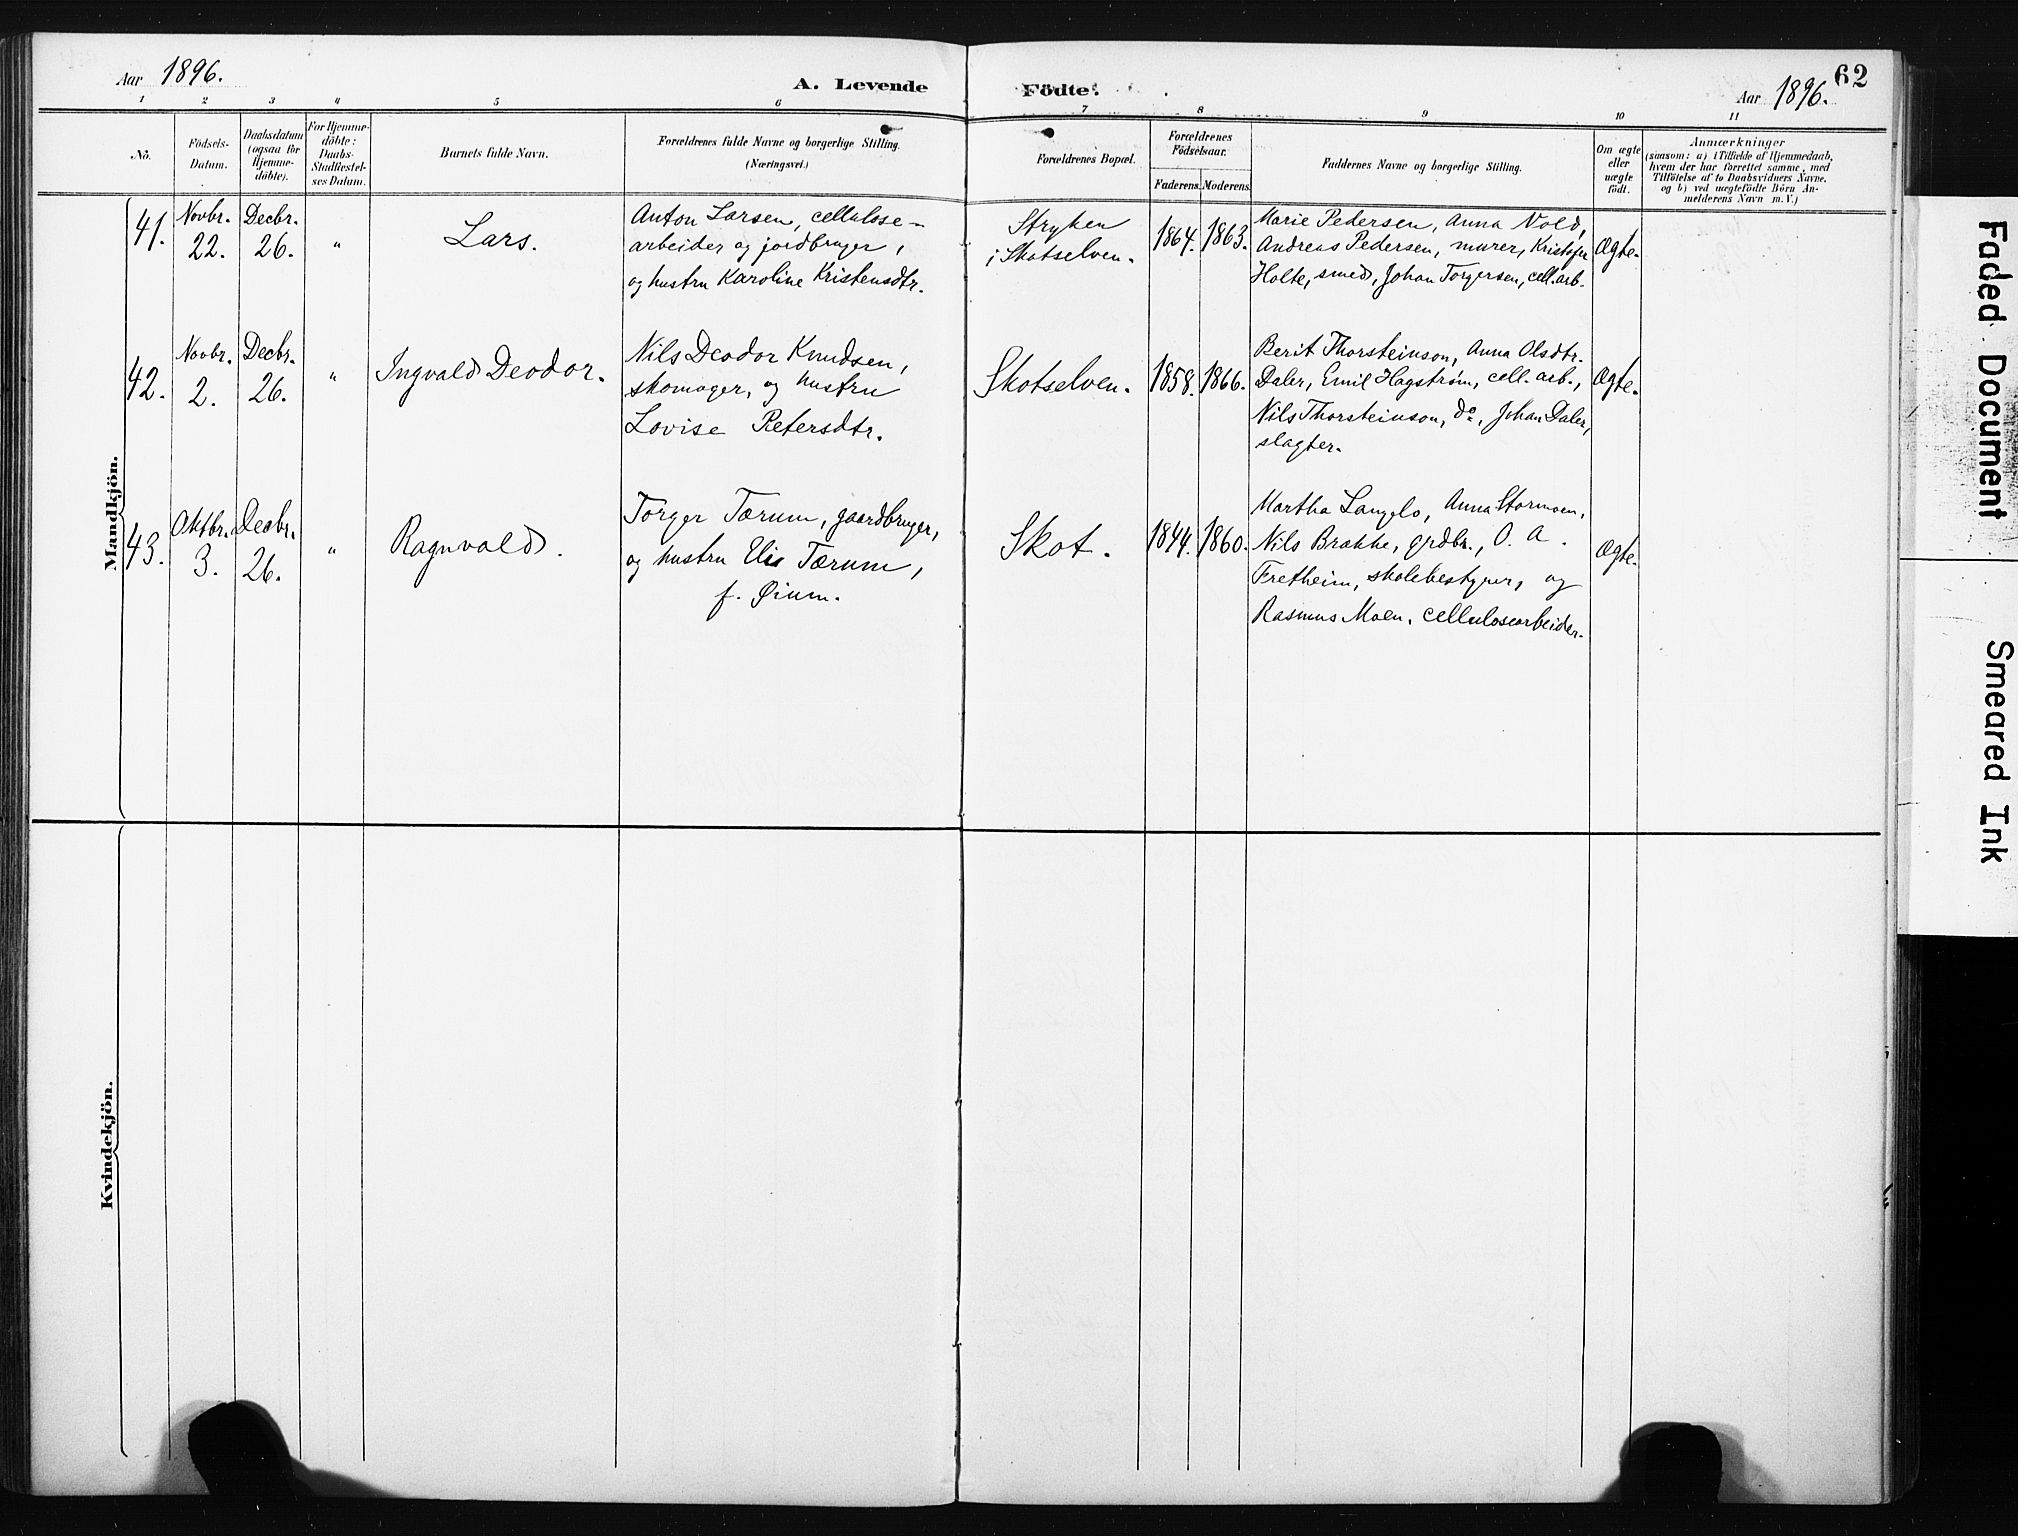 Aar 1896.
A. Levende
Födte.
Aar 1896.
62
1 2 3 4 5 6 7 8 9 10 11
No.
Födsels-
Datum.
Daabsdatum
(ogsaa for
Hjemme-
döbte).
For Hjemme-
döbte:
Daabs-
Stadfæstel-
ses Datum.
Barnets fulde Navn.
Forældrenes fulde Navne og borgerlige Stilling.
(Næringsvei.)
Forældrenes Bopæl.
Forældrenes
Födselsaar.
Faderens.
Moderens.
Faddernes Navne og borgerlige Stilling.
Om ægte
eller
uægte
födt.
Anmærkninger
(saasom: a) i Tilfælde af Hjemmedaab,
hvem der har forrettet samme, med
Tilföielse af to Daabsvidners Navne,
og b) ved uægtefödte Börn An-
melderens Navn m. V.)
Mandkjön.
41.
Novbr.
22.
Decbr.
26.
"
Lars.
Anton Larsen, cellulose-
arbeider og jordbruger,
og hustru Karoline Kristensdtr.
Stryken
i Skotselven.
1864.
1863.
Marie Pedersen, Anna Nold,
Andreas Pedersen, murer, Kristofer
Holte, smed, Johan Torgersen, cell.arb.
Ægte.
42.
Novbr.
2.
Decbr.
26.
"
Ingvald Deodor.
Nils Deodor Knudsen,
skomager, og hustru
Lovise Petersdtr.
Skotselven.
1858.
1866.
Berit Thorsteinson, Anna Olsdtr.
Daler, Emil Hagstrøm, cell. arb.,
Nils Thorsteinson, do., Johan Daler,
slagter.
Ægte.
43.
Oktbr.
3.
Decbr.
26.
"
Ragnvald.
Torger Tærum, gaardbruger,
og hustru Elis Tærum,
f. Øium.
Skot.
1844.
1860.
Martha Langelo, Anna Stormoen,
Nils Brakke, grdbr., O. A.
Fretheim, skolebestyrer, og
Rasmus Moen, cellulosearbeider.
Ægte.
Kvindekjön.
Faded Document
Smeared Ink